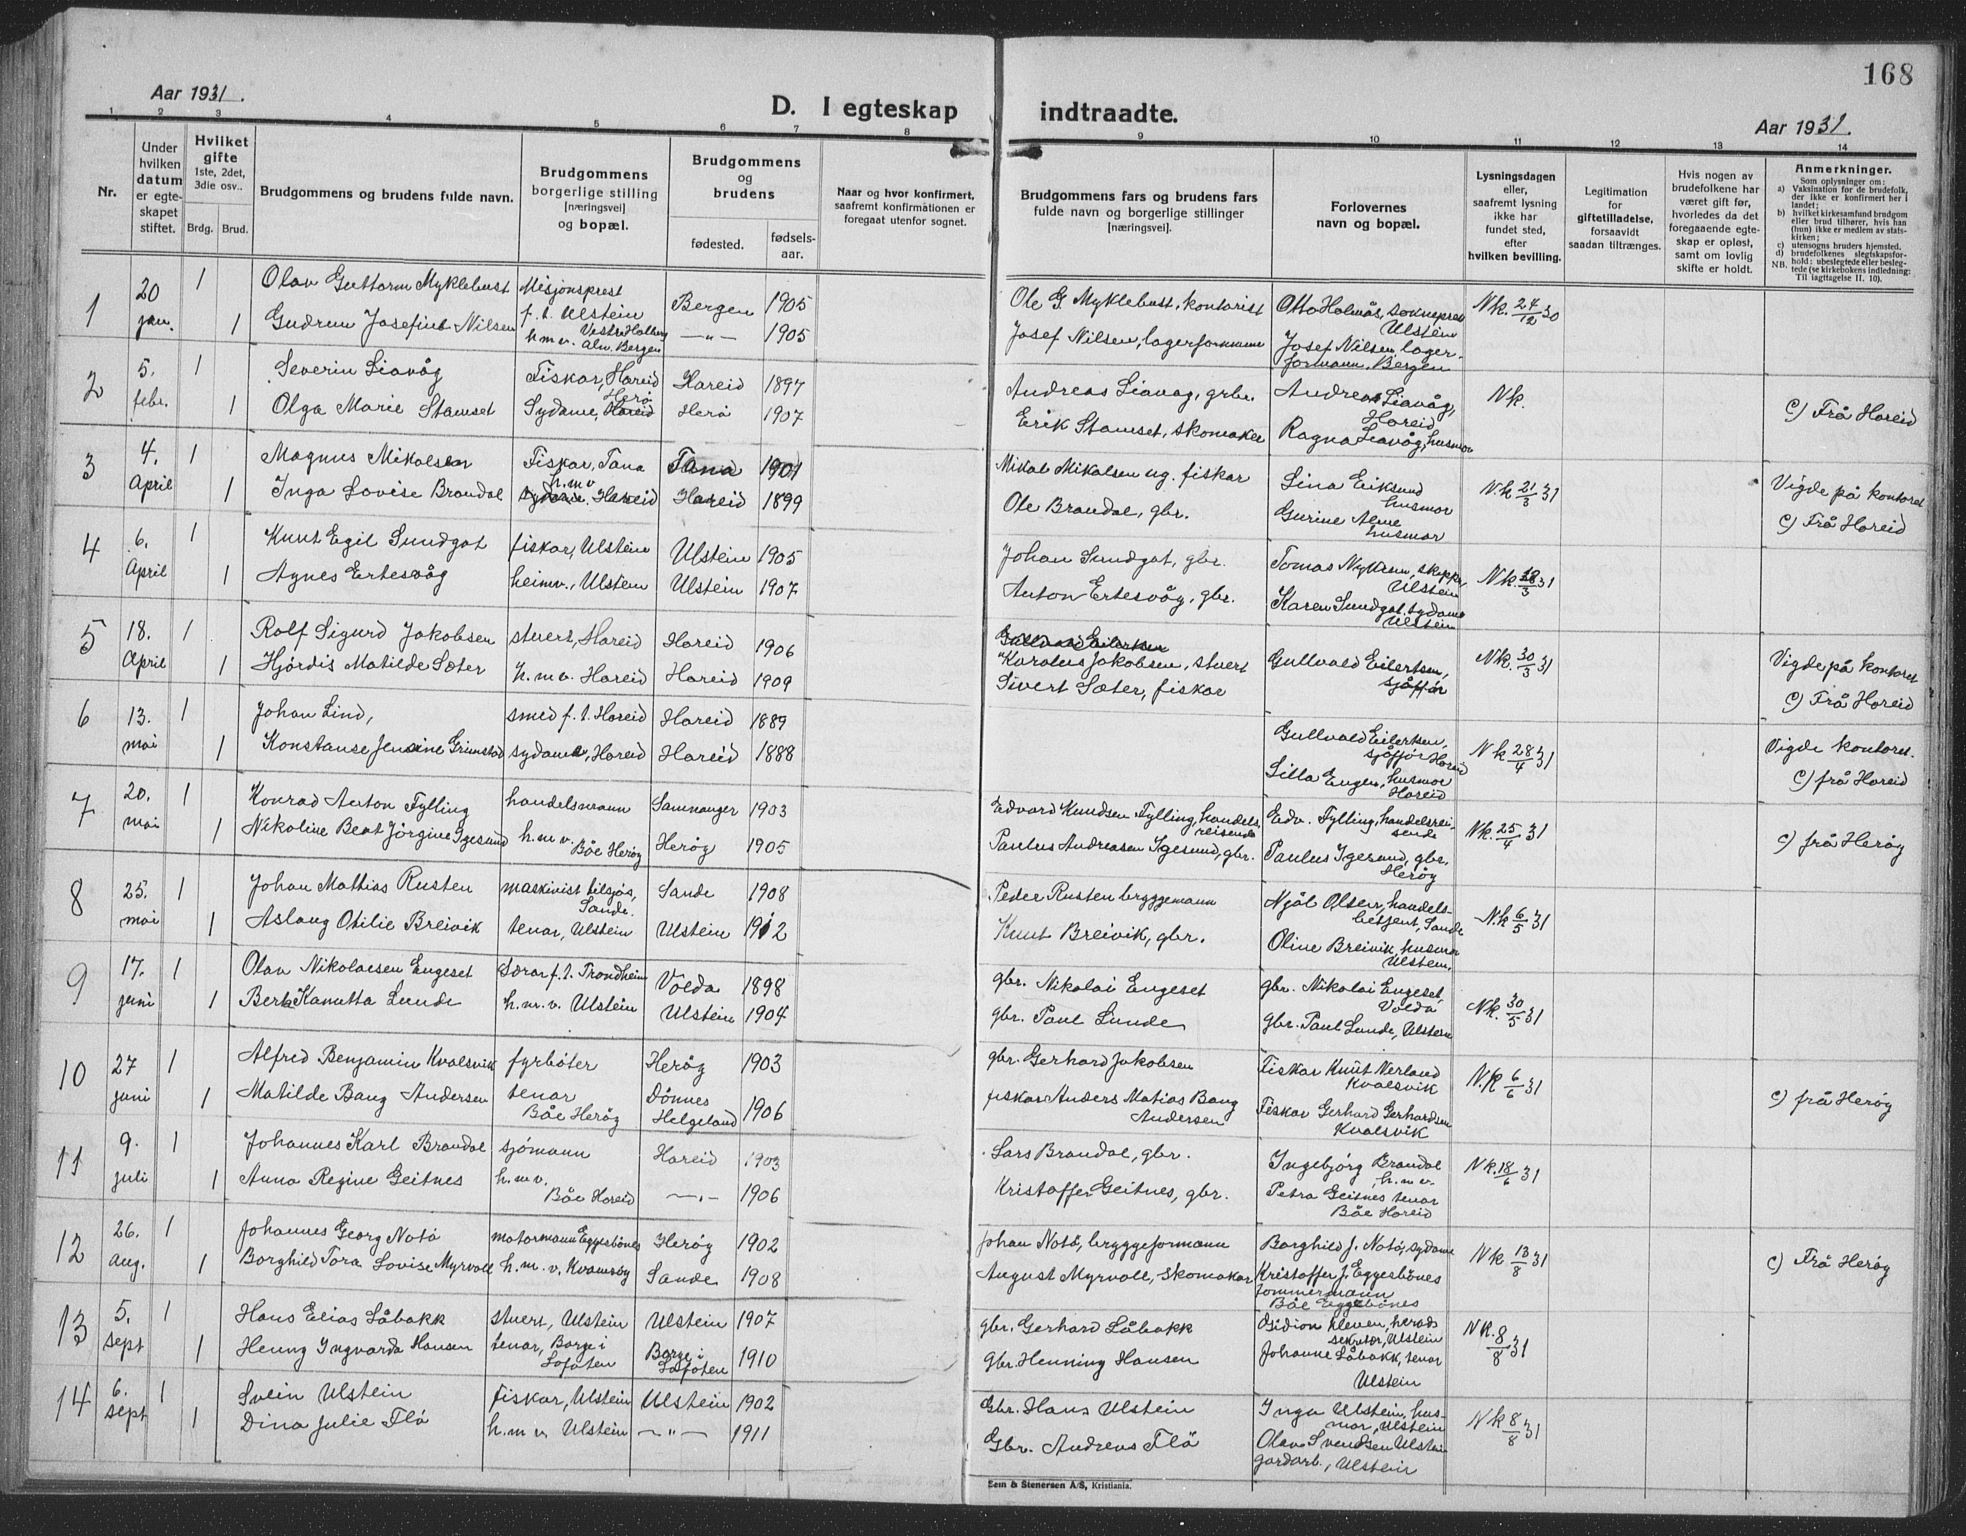 168
Aar 1931.
D. I egteskap indtraadte.
Aar 1931.
1 2 3 4 5 6 7 8 9 10 11 12 13 14
Nr.
Under hvilken datum er egteskapet stiftet.
Hvilket gifte
1ste, 2det, 3die osv..
Brdg. Brud.
Brudgommens og brudens fulde navn.
Brudgommens borgerlige stilling [næringsvei] og bopæl.
Brudgommens og brudens
fødested.
fødsels-aar.
Naar og hvor konfirmert, saafremt konfirmationen er foregaat utenfor sognet.
Brudgommens fars og brudens fars fulde navn og borgerlige stillinger [næringsvei].
Forlovernes navn og bopæl.
Lysningsdagen eller, saafremt lysning ikke har fundet sted, efter hvilken bevilling.
Legitimation for giftetilladelse, forsaavidt saadan tiltrænges.
Hvis nogen av brudefolkene har været gift før, hvorledes da det foregaaende egteskap er opløst, samt om lovlig skifte er holdt.
Anmerkninger.
Som oplysninger om:
a) Vaksination for de brudefolk, der ikke er konfirmert her i landet;
b) hvilket kirkesamfund brudgom eller brud tilhører, hvis han (hun) ikke er medlem av statskirken;
c) utensogns bruders hjemsted.
d) brudefolkenes slegtskapsforhold: ubeslegtede eller beslegtede (se kirkebokens indledning: Til iagttagelse II. 10).
NB.
1 20 jan. 1 Olav Guttorm Myklebust Misjonsprest f. t. Ulstein Bergen 1905 Ole G. Myklebust, kontorist Otto Holmås, sokneprest Ulstein Nk. 24/12 30
1 Gudrun Josefine Nilsen h.m.v. Alv. Bergen —"— 1905 Josef Nilsen, lagerformann Josef Nilsen lagerformann, Bergen
2 5. febr. 1 Severin Liavåg Fiskar, Hareid Hareid 1897 Andreas Liavåg, grbr. Andreas Liavåg, Hareid Nk.
1 Olga Marie Stamset Sydame, Herö Herö 1907 Erik Stamset, skomaker Ragna Liavåg, husmor c) Frå Hareid
3 4. April 1 Magnus Mikalsen Fiskar, Tana Tana 1901 Mikal Mikalsen ug. fiskar Lina Eiksund husmor N.k 21/3 31 Vigde på kontoret
1 Inga Lovise Brandal h.m.v. Hareid Hareid 1899 Ole Brandal, gbr. Gurine Alme husmor c) Frå Hareid
4 6. April 1 Knut Egil Sundgot fiskar, Ulstein Ulstein 1905 Johan Sundgot, gbr. Tomas Myklebun, skippr, Ulstein Nk. 18/3 31
1 Agnes Ertesvåg heimv., Ulstein Ulstein 1907 Anton Ertesvåg, gbr. Karen Sundgot, sydame Ulstein
5 18. April 1 Rolf Sigurd Jakobsen stuert, Hareid Hareid 1906 Karolus Jakobsen, stuert Gullvald Eilertsen, sjåffør Nk. 30/3 31 Vigde på kontoret
1 Hjördis Matilde Sæter h.m.v. Hareid Hareid 1909 Sivert Sæter, fiskar c) Frå Hareid
6 13. mai 1 Johan Lind, smed f. t. Hareid Hareid 1889 Gullvald Eilertsen, sjåffør Hareid Nk 28/4 31 Vigde kontoret.
1 Konstanse Jensine Grimstad sydame, Hareid Hareid 1888 Lilla Engen, husmor Hareid c) frå Hareid
7 20. mai 1 Konrad Anton Tylling handelsmann Samnanger 1903 Edvard Knudsen Tylling, handelsreisende Edv. Tylling, handelsreisende Nk. 25/4 31
1 Nikoline Beat Jörgine Igesund h.m.v. Båe Heröy Heröy 1905 Paulus Andreasen Igesund, gbr. Paulus Igesund, gbr. Heröy c) frå Heröy
8 25. mai 1 Johan Mattias Rusten maskinist tilsjøs, Sande. Sande 1908 Peder Rusten bryggemann Njål Olsen, handelsbetjent, Sande N.k 6/5 31
1 Aslaug Otilie Breivik tenar, Ulstein Ulstein 1912 Knut Breivik, gbr. Oline Breivik, husmor Ulstein.
9 17. juni 1 Olav Nikolaesen Engeset Lærar f. t. Trondheim Volda 1898 gbr. Nikolai Engeset gbr. Nikolai Engeset, Volda Nk. 30/5 31
1 Berta Kanutta Lunde h.m.v. Ulstein Ulstein 1904 gbr. Paul Lunde gbr. Paul Lunde, Ulstein
10 27 juni 1 Alfred Benjamin Kvalsvik fyrböter Heröy 1903 gbr. Gerhard Jakobsen Fiskar Knut Nerland Kvalsvik N.k 6/6 31
1 Matilde Bang Andersen tenar Båe Heröy Dönnes Helgeland 1906 fiskar Anders Matias Bang Andersen Fiskar Gerhard Gerhardsen Kvalsvik c) frå Heröy
11 9. juli 1 Johannes Karl Brandal sjömann Hareid 1903 Lars Brandal, gbr. Ingebjörg Brandal h.m.v. Nk. 18/6 31
1 Anna Regine Geitnes h.m.v. Båe Hareid —"— 1906 Kristoffer Geitnes, gbr. Petra Geitnes tenar Båe Hareid
12 26. aug. 1 Johannes Georg Notö motormann Eggesbönes Heröy 1902 Johan Notö, bryggeformann Borghild J. Notö, sydame Nk 13/8 31
1 Borghild Tora Lovise Myrvoll h.m.v. Kvamsöy Sande 1908 August Myrvoll, skomakar Kristoffer J. Eggesbönes tömmermann Båe Eggesbönes c) Frå Heröy
13 5. sept 1 Hans Elias Låbakk stuert, Ulstein Ulstein 1907 gbr. Gerhard Låbakk Gidion Kleven, heradssekretær, Ulstein Nk. 8/8 31
1 Henny Ingvarda Hansen tenar, Borge i Lofoten Borge i Lofoten 1910 gbr. Henning Hansen Johanne Låbakk, tenar Ulstein
14 6. sept 1 Svein Ulstein fiskar, Ulstein Ulstein 1902 Gbr. Hans Ulstein Inga Ulstein, husmor, Ulstein Nk 8/8 31
1 Dina Julie Flö h.m.v. Ulstein —"— 1911 Gbr. Andreas Flö Olav Svendsen Ulstein gardarb., Ulstein
Sem & Stenersen A/S, Kristiania.